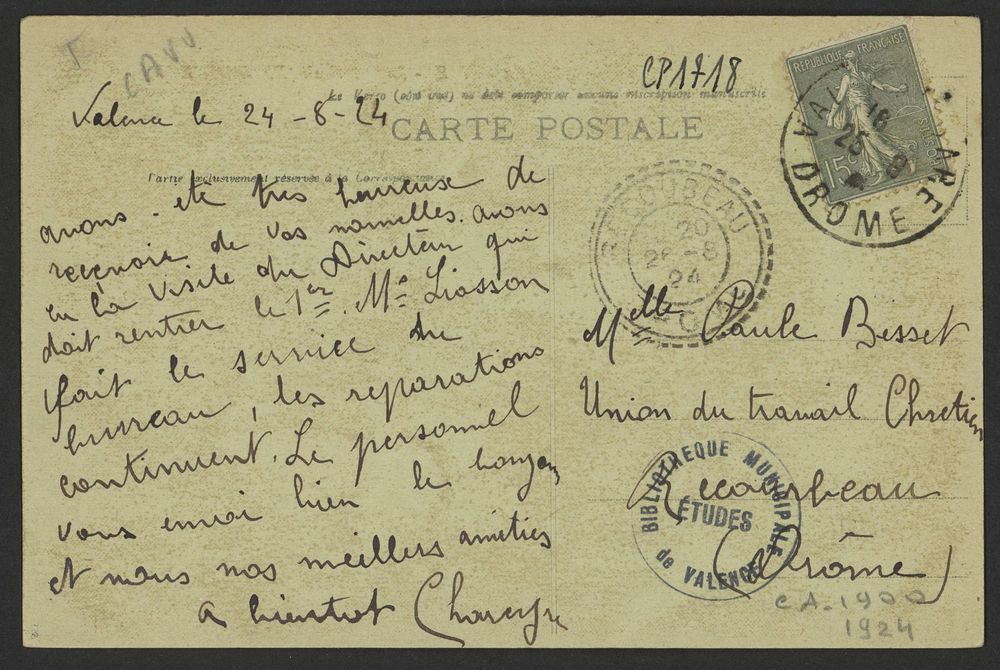 T
CAVU
CP1718
Le Verso (côté vue) ne doit comporter aucune inscription manuscrite
Valence le 24-8-24
CARTE POSTALE
Partie exclusivement réservée à la Correspondance
RÉPUBLIQUE FRANÇAISE
15c
VAL
16
25 8
DROME
RECOUBEAU
20
26-8
24
avons été très heureuse de
reçevoir de vos nouvelles. avons
eu la visite du Directeur qui
doit rentrer le 1er. Me Liosson
fait le service du
bureau, les reparations
continuent. Le personnel
vous envoi bien le bonjour
et nous nos meillers amitiés
a bientot
Melle Paule Besset
Union du travail Chretien
Recourbeau
(Drôme)
BIBLIOTHEQUE MUNICIPALE
ÉTUDES
de VALENCE
CA-1900
1924